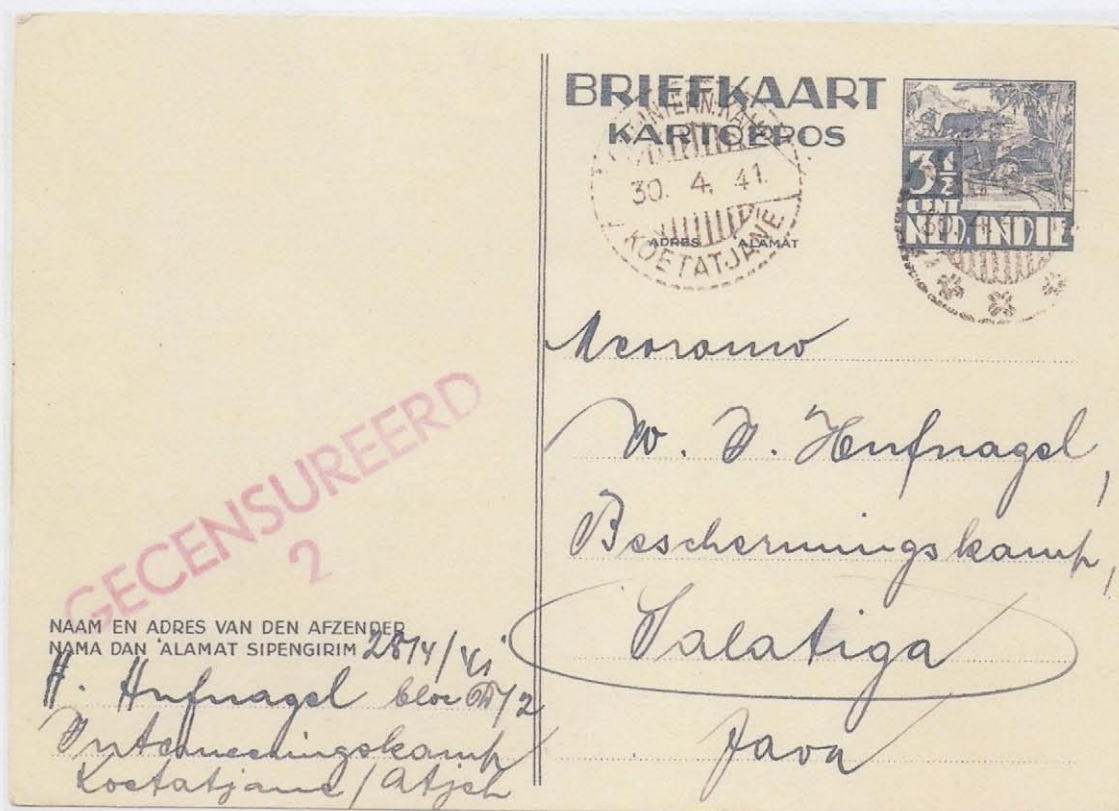 BRIEFKAART
KARTOEPOS
INTERN.KA
30. 4. 41.
KOETATJANE
ADRES ALAMAT
3½
CENT
NED.INDIE
30. 4.
W. H. Hufnagel,
Beschermingskamp,
Salatiga
Java
GECENSUREERD
2
NAAM EN ADRES VAN DEN AFZENDER
NAMA DAN 'ALAMAT SIPENGIRIM
H. Hufnagel bloc /2
Interneeringskamp
Koetatjane/Atjeh